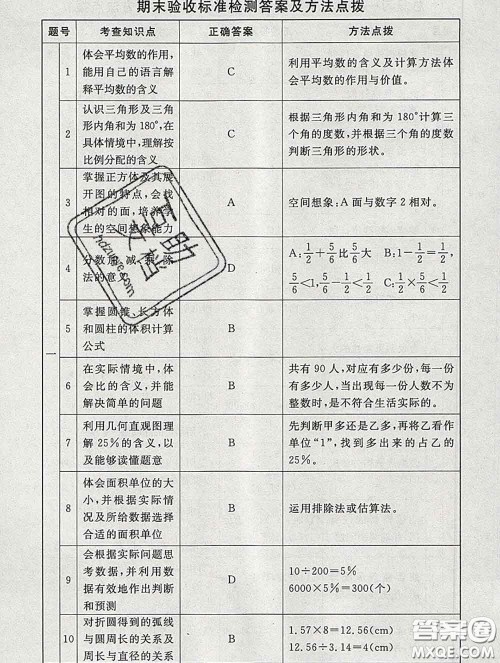 期末验收标准检测答案及方法点拨
题号 考查知识点 正确答案 方法点拨
一
1
体会平均数的作用,
能用自己的语言解
释平均数的含义
C
利用平均数的含义及计算方法体
会平均数的作用与价值。
2
认识三角形及三角
形内角和为180°,在
具体情境中,理解按
比例分配的含义
C
根据三角形内角和为180°计算三
个角的度数,并根据三个角的度数
判断三角形的形状。
3
掌握正方体及其展
开图的特点,会找
相对的面,培养学
生的空间想象能力
A
空间想象:A面与数字2相对。
4
分数加、减、乘、除
法的意义
D
A:1/2+5/6比5/6大 B:1-1/2=1/2,
5/6<1,5/6-1/2<1/2 C:1/2×5/6<1/2
5
掌握圆锥、长方体
和圆柱的体积计算
公式
B
6
在实际情境中,体
会比的含义,并能
解决简单的问题
B
共有90人,对应有多少份,每一份
有多少人,当出现每一份人数不为
整数时,是不符合生活实际的。
7
利用几何直观图理
解25%的含义,以
及能够读懂题意
B
先判断甲多还是乙多,再将乙看作
单位“1”,找到多出来的占乙的
25%。
8
体会面积单位的大
小,并根据实际情
况及所给数据选择
合适的面积单位
B
运用排除法或估算法。
9
会根据实际问题思
考数据,并利用数
据有效地作出判断
和预测
D
10÷200=5%
6000×5%=300(个)
10
对折圆得到的弧线
与圆周长的关系及
周长与直径的关系
B
1.57×8=12.56(cm)
12.56÷3.14=4(cm)
互助
文档
hdzuoye.com
答案圈
MXQE.COM